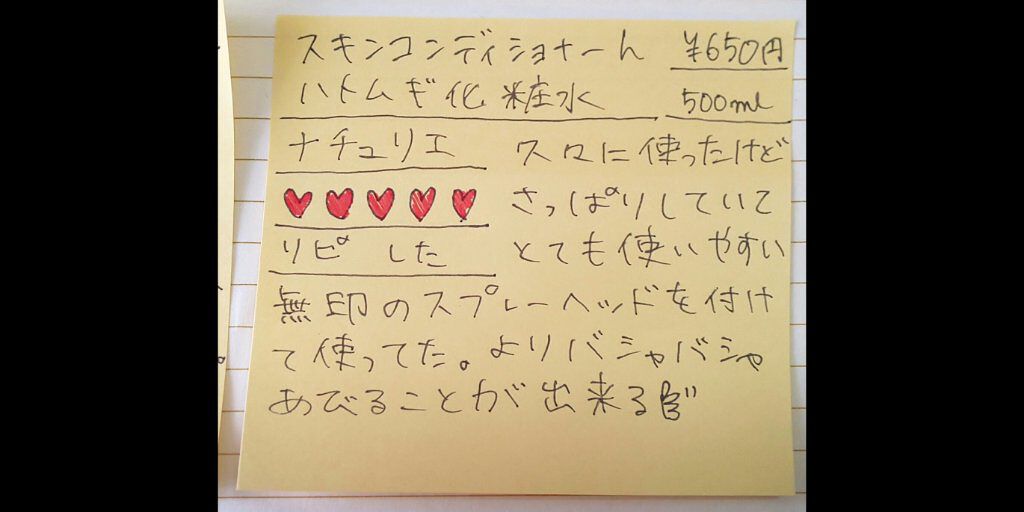 スキンコンディショナーん ¥650円
ハトムギ化粧水 500ml
ナチュリエ 久々に使ったけど
さっぱりしていて
リピした とても使いやすい
無印のスプレーヘッドを付け
て使ってた。よりバシャバシャ
あびることが出来る